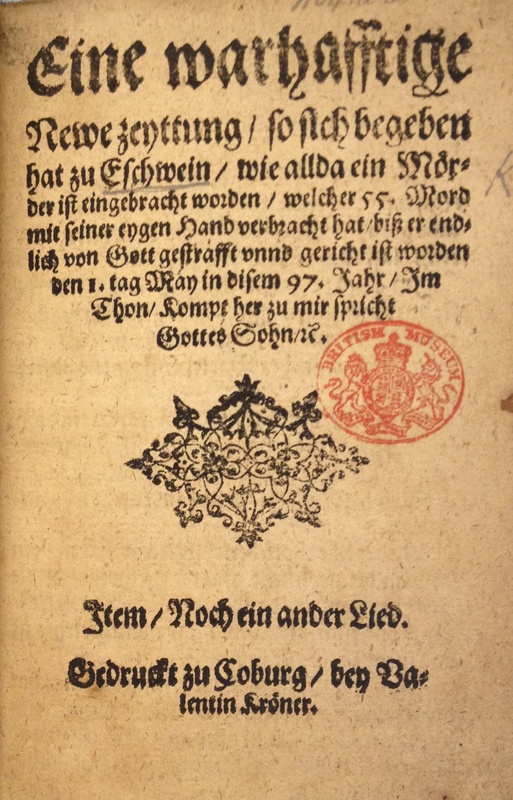 Eine warhafftige
Newe zeyttung / so sich begeben
hat zu Eschwein / wie allda ein Mör-
der ist eingebracht worden / welcher 55. Mord
mit seiner eygen Hand verbracht hat / biß er end-
lich von Gott gestrafft vnnd gericht ist worden
den 1. tag May in disem 97. Jahr / Im
Thon / Kompt her zu mir spricht
Gottes Sohn / ꝛc.
BRITISH MUSEUM
Item / Noch ein ander Lied.
Gedruckt zu Coburg / bey Va-
lentin Kröner.